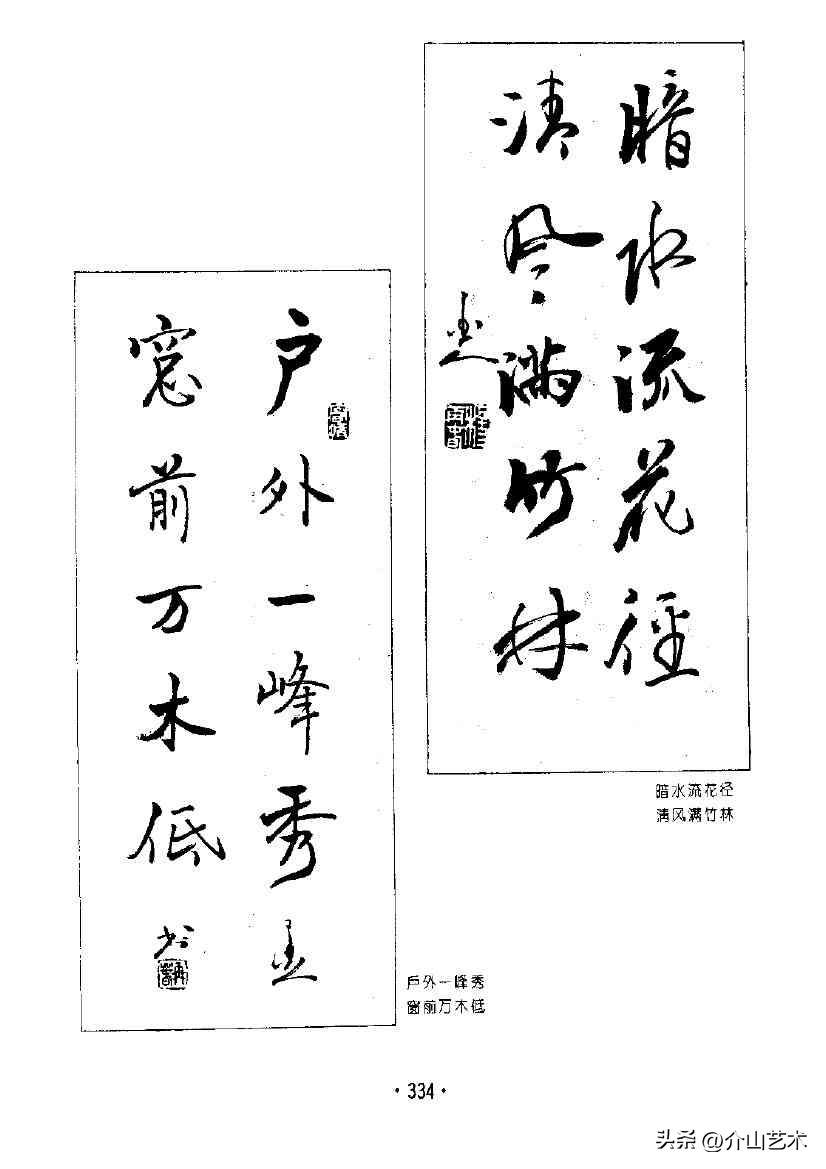 暗水流花径
清风满竹林
暗水流花径
清风满竹林
户外一峰秀
窓前万木低
戶外一峰秀
窗前万木低
·334·
头条@介山艺术